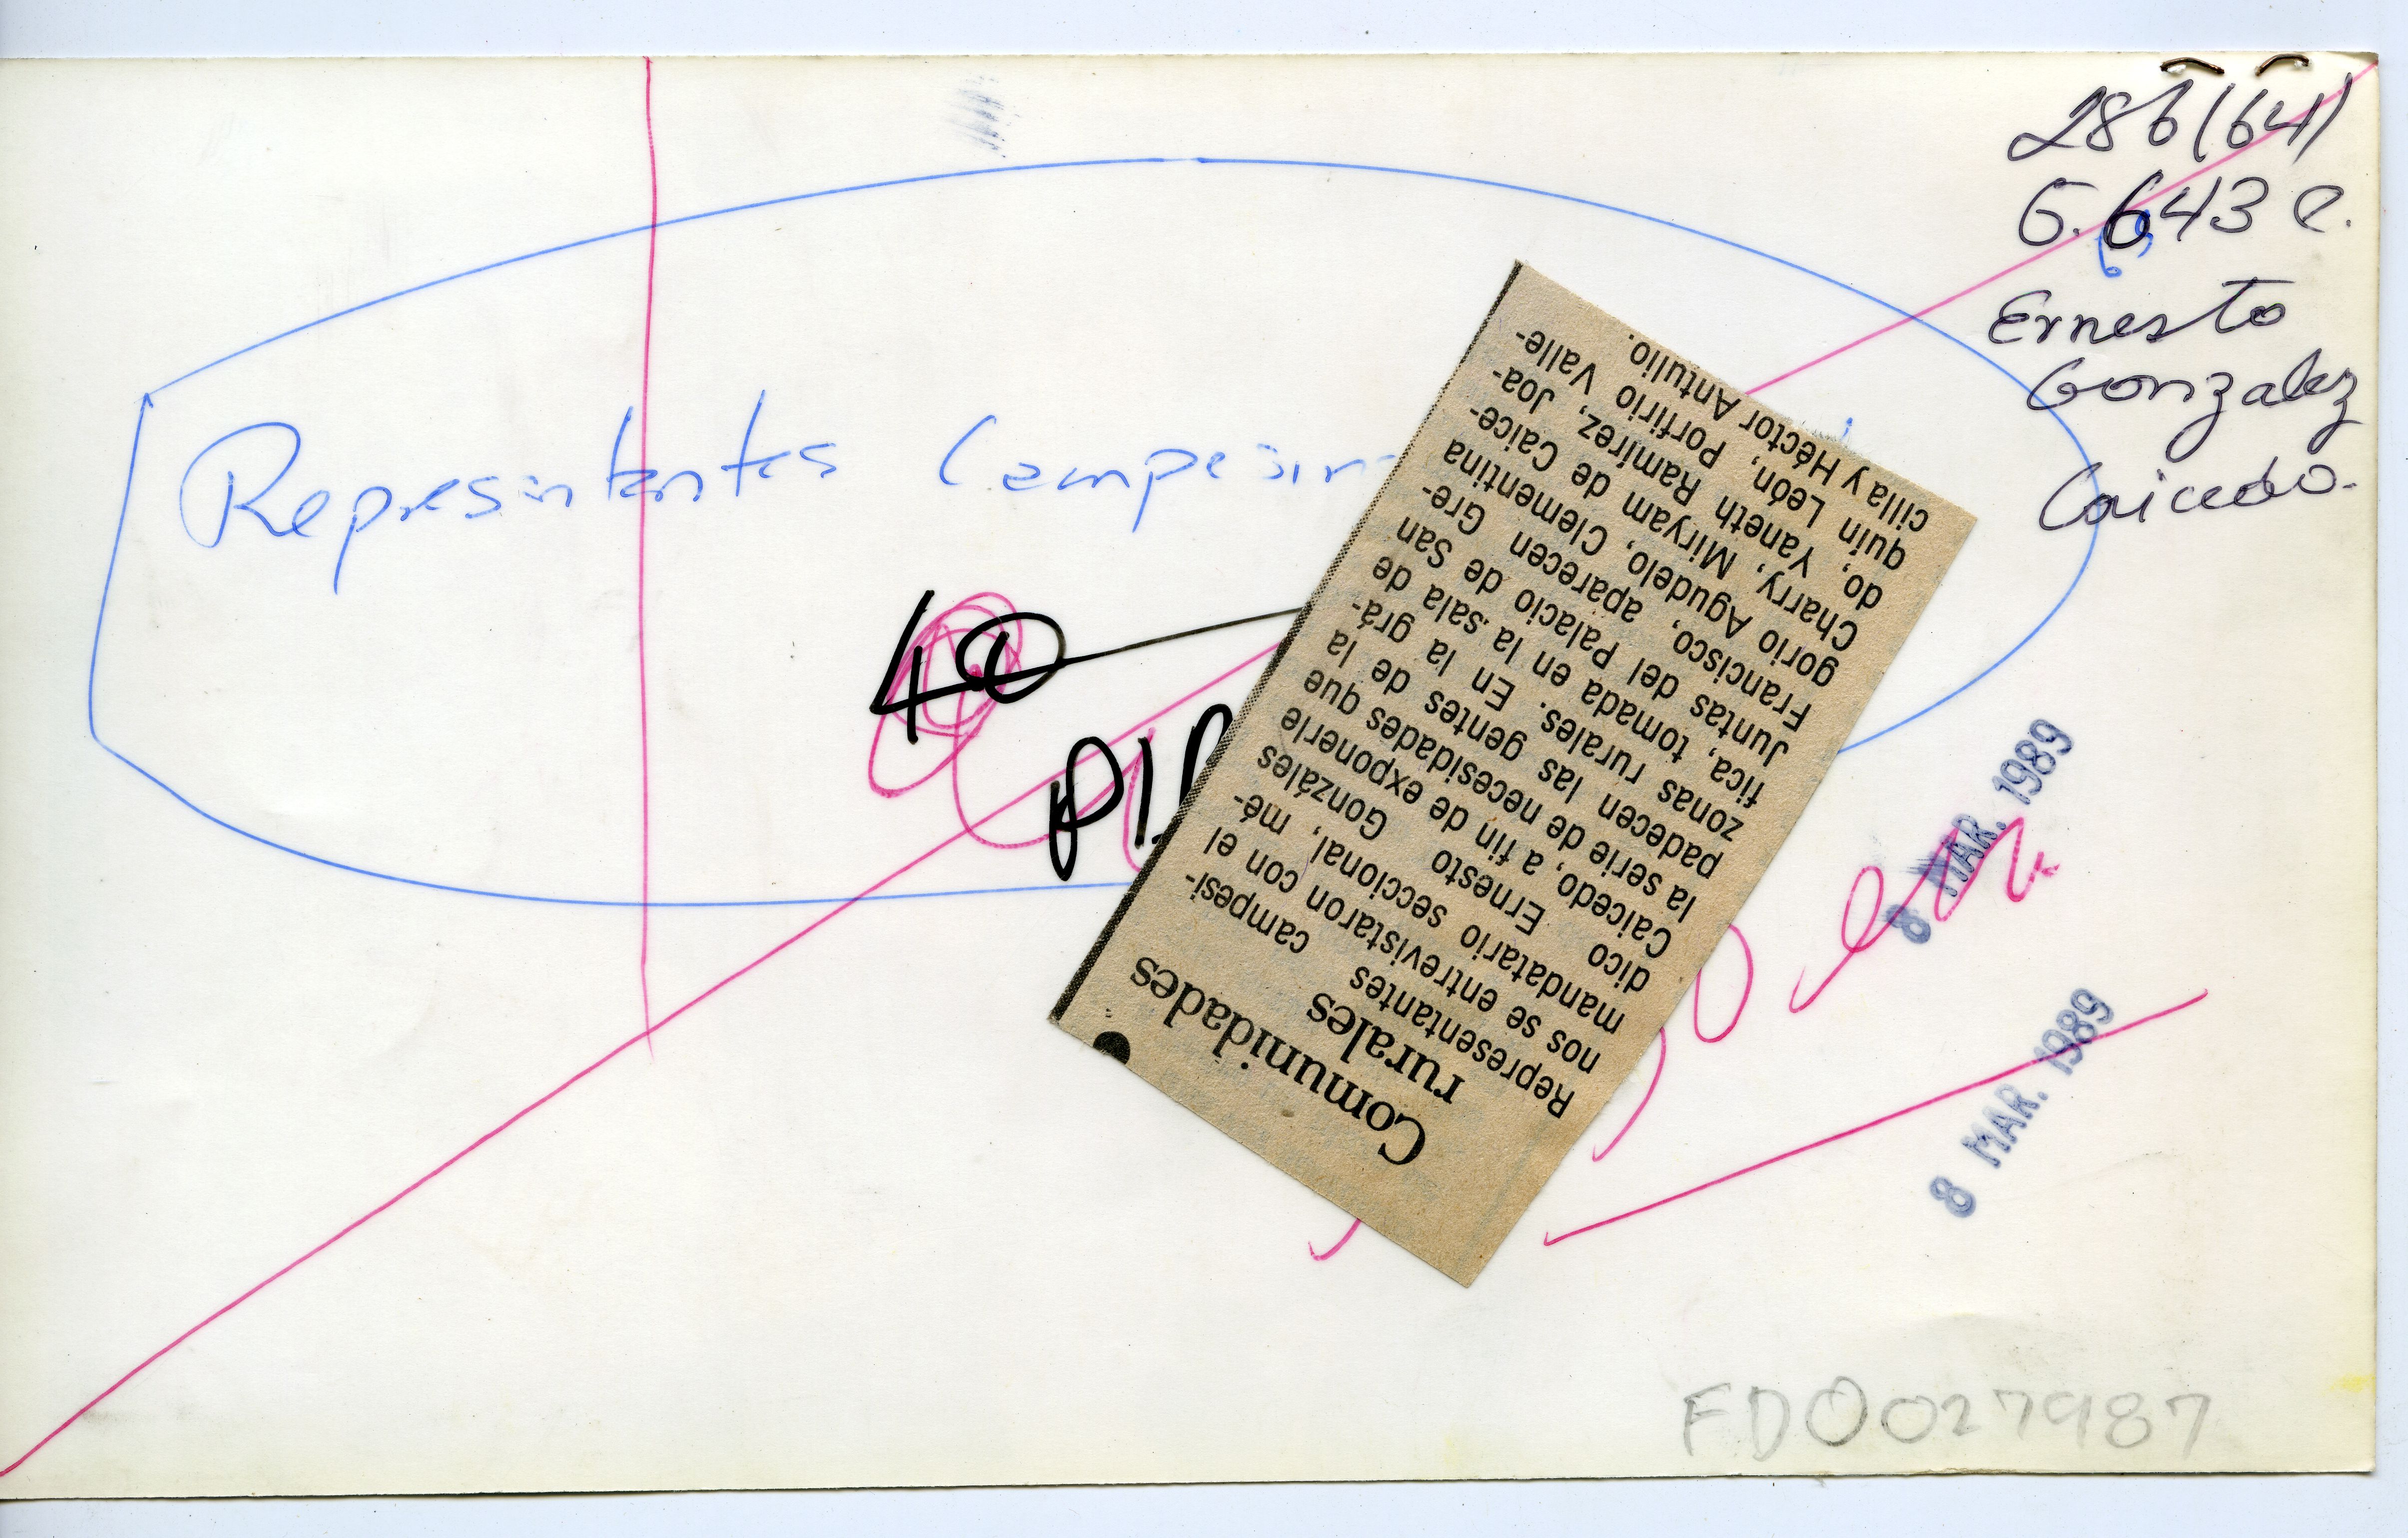 286(64)
6.643 e.
Ernesto
Gonzalez
Caicedo.
Representantes
40
8 MAR. 1989
8 MAR. 1989
Comunidades
rurales
Representantes campesi-
nos se entrevistaron con el
mandatario seccional, mé-
dico Ernesto Gonzáles
Caicedo, a fin de exponerle
la serie de necesidades que
padecen las gentes de la
zonas rurales. En la grá-
fica, tomada en la sala de
Juntas del Palacio de San
Francisco, aparecen Gre-
gorio Agudelo, Clementina
Charry, Miryam de Caice-
do, Yaneth Ramírez, Joa-
quín León, Porfirio Valle-
cilla y Héctor Antulio.
FD0027987